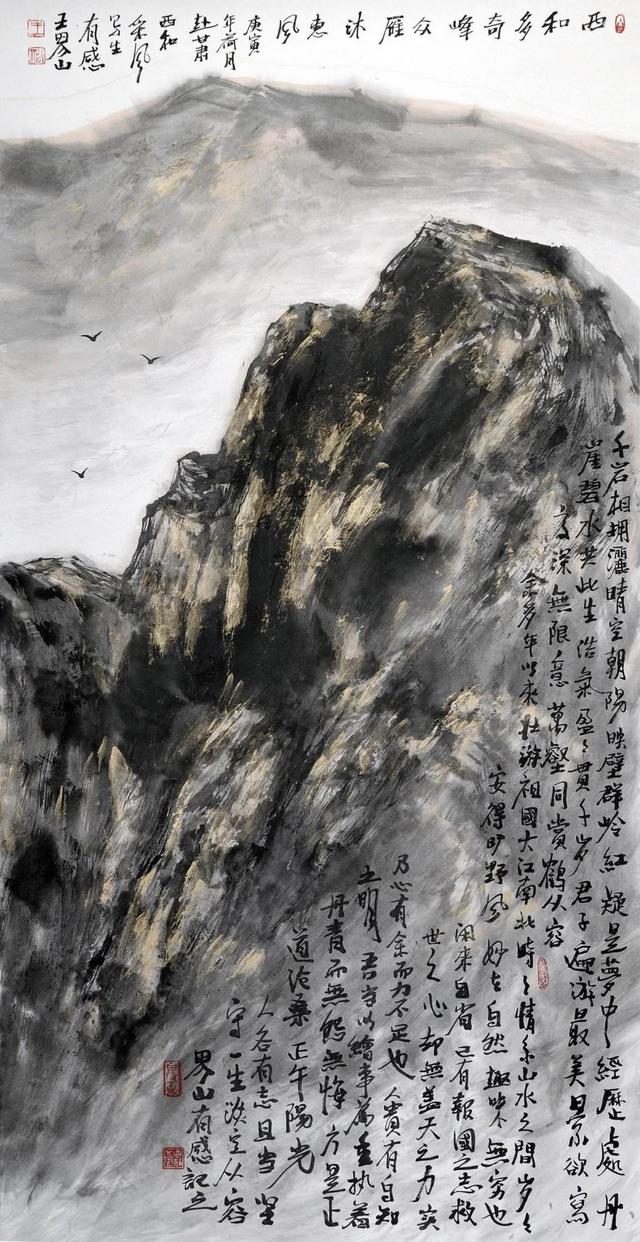 西和多奇峰众雁沐惠风
庚寅
年荷月
赴甘肃
西和
采风
写生
有感
王界山
千岩相拥灑晴空朝陽映壁群岭紅疑是夢中々經歷處丹
崖碧水共此生浩氣盈々貫千岁君子遍游最美景欲寫
高深無限意萬壑同赏鶴从容
余多年以來壮游祖國大江南北時々情系山水之間岁々
安得旷野風妙在自然趣味無穷也
闲來自省已有報國之志救
世之心却無盖天之力实
乃心有余而力不足也人貴有自知
之明吾当以繪事為重执着
丹青而無怨無悔方是正
道沧桑正午陽光
人各有志且当坚
守一生淡定从容
界山有感記之